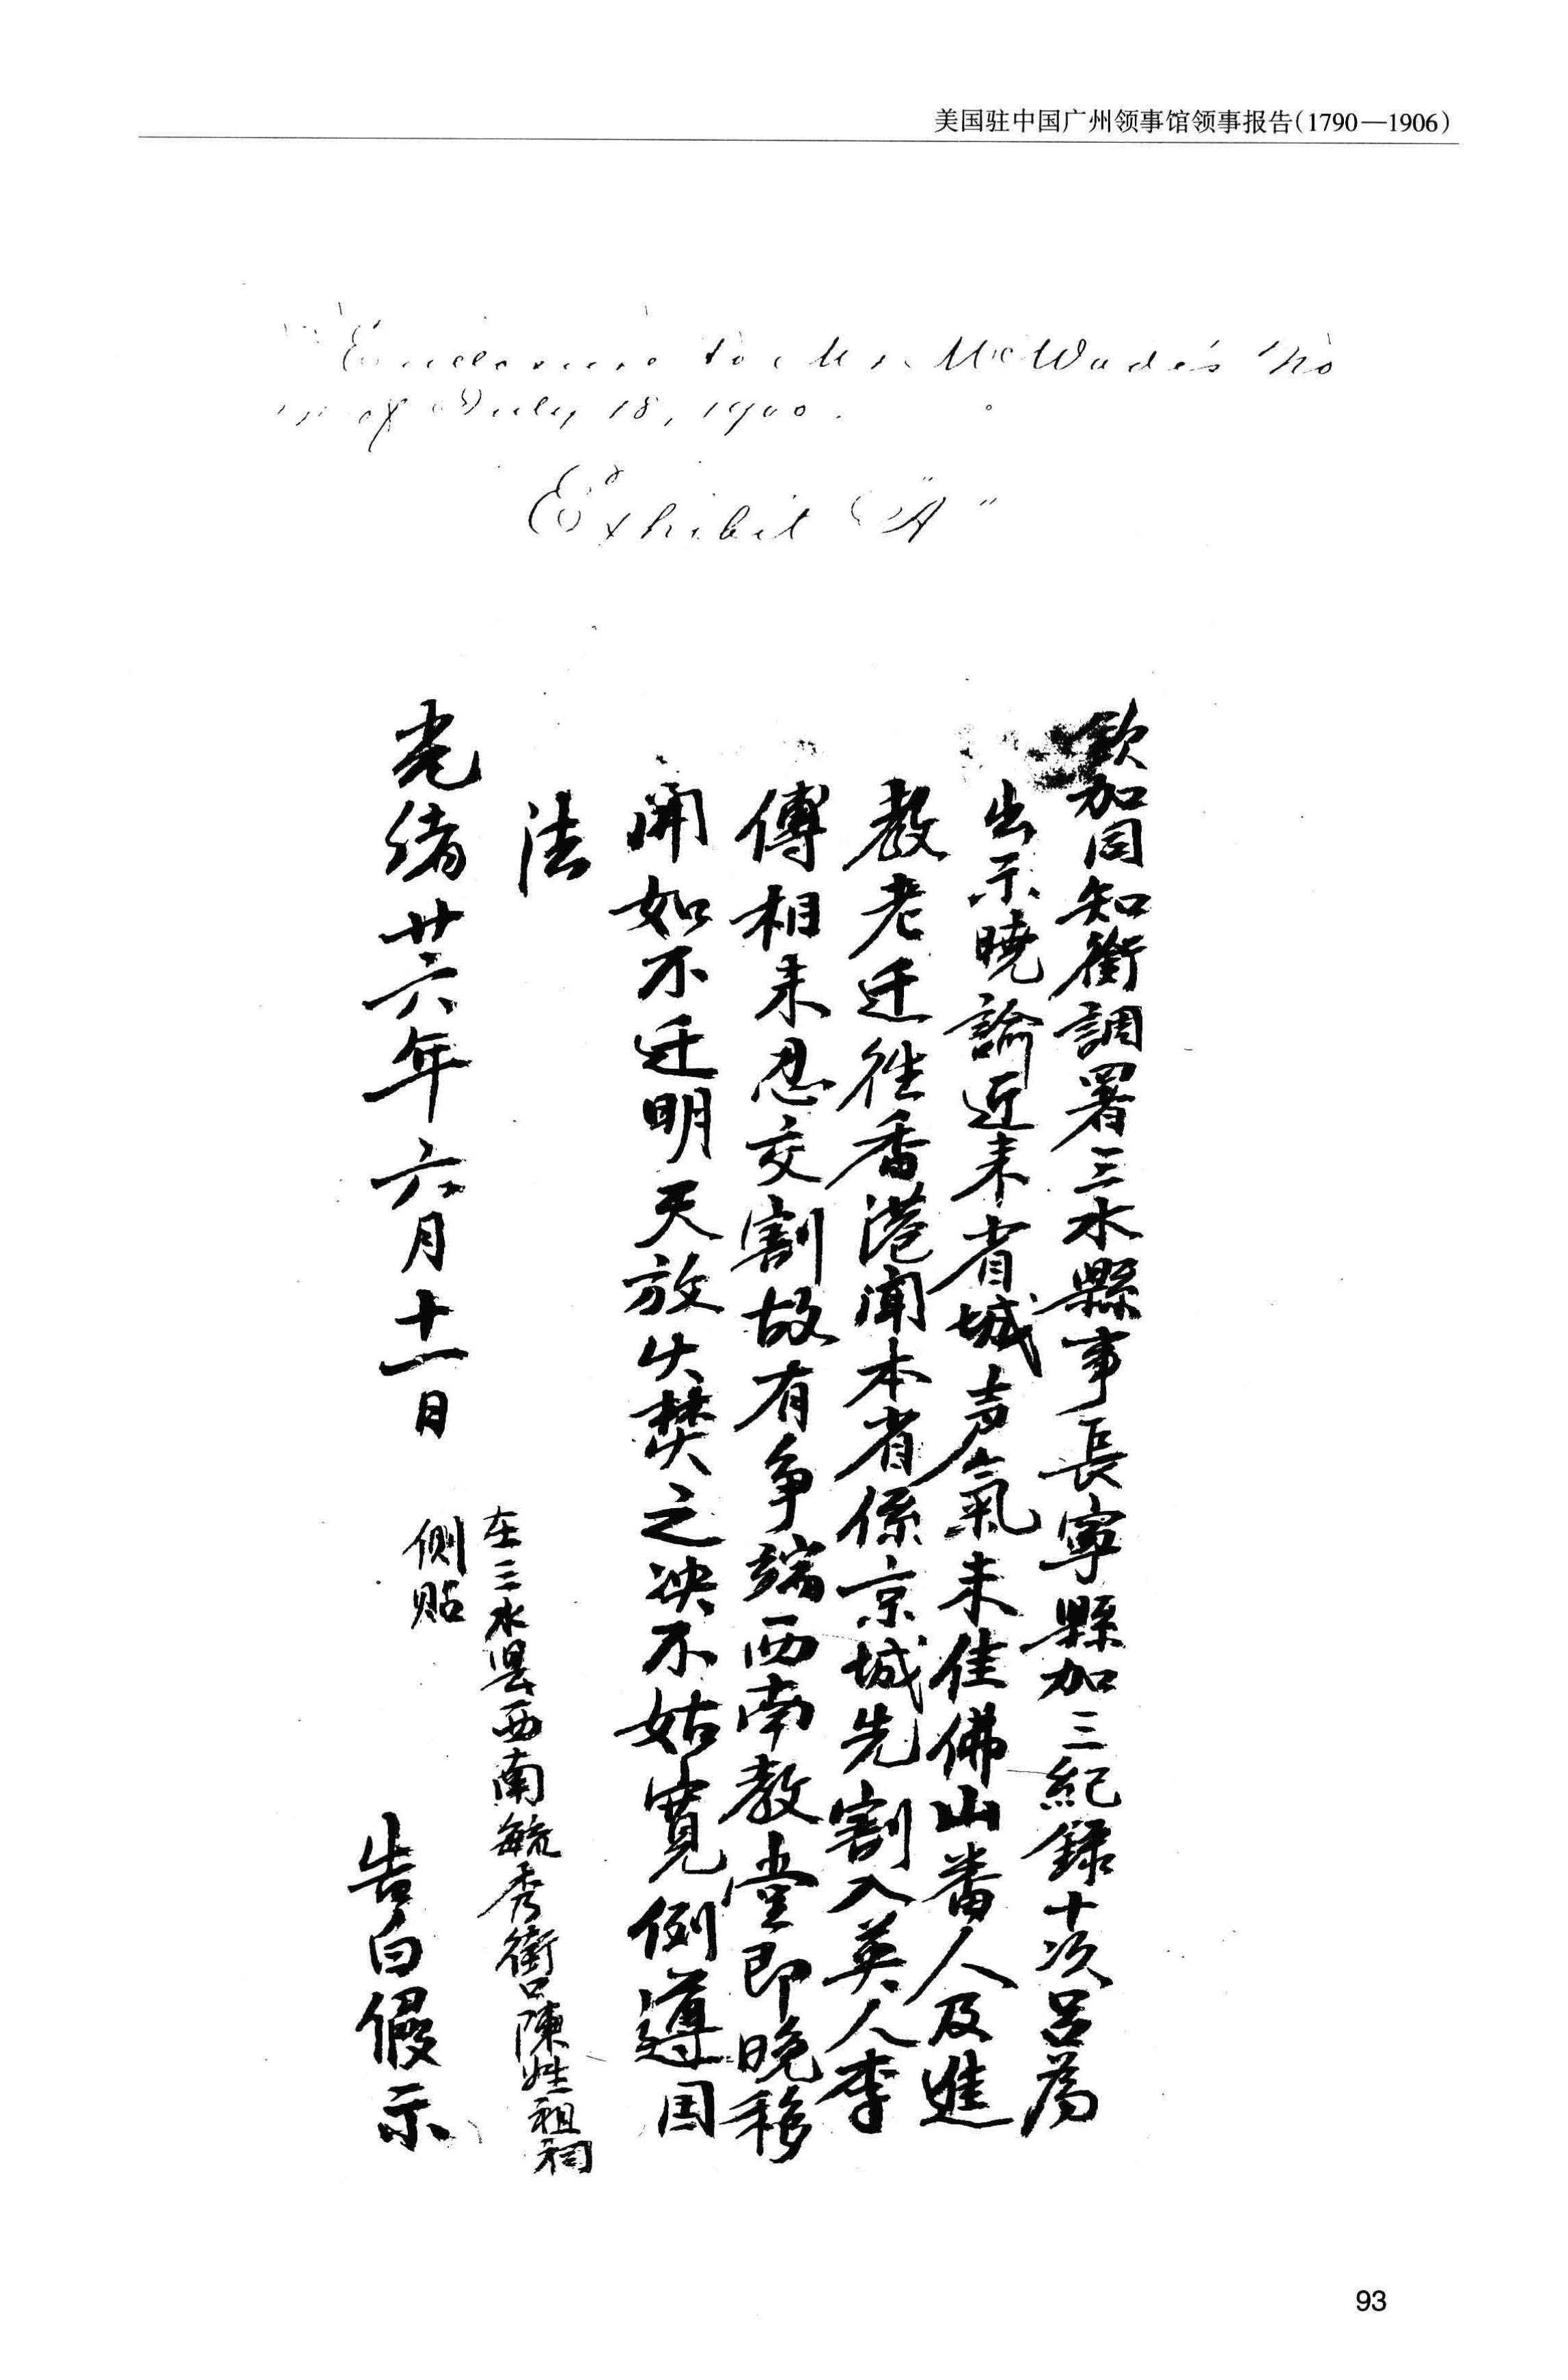 美国驻中国广州领事馆领事报告(1790—1906)
Enclosure to Mr. McWade's No
of July 18, 1900.
Exhibit "A"
欽加同知銜調署三水縣事長寧縣加三紀録十次吕為
出示曉諭近来省城声氣未佳佛山番人及進
教老迁徃香港闻本省係京城先割入英人李
傅相未忍交割故有争端西南教堂即晚移
開如不迁明天放火焚之决不姑寛例遵国
法
光绪廿六年六月十一日
在三水县西南毓秀街口陳姓祖祠
侧贴
告白假示
93